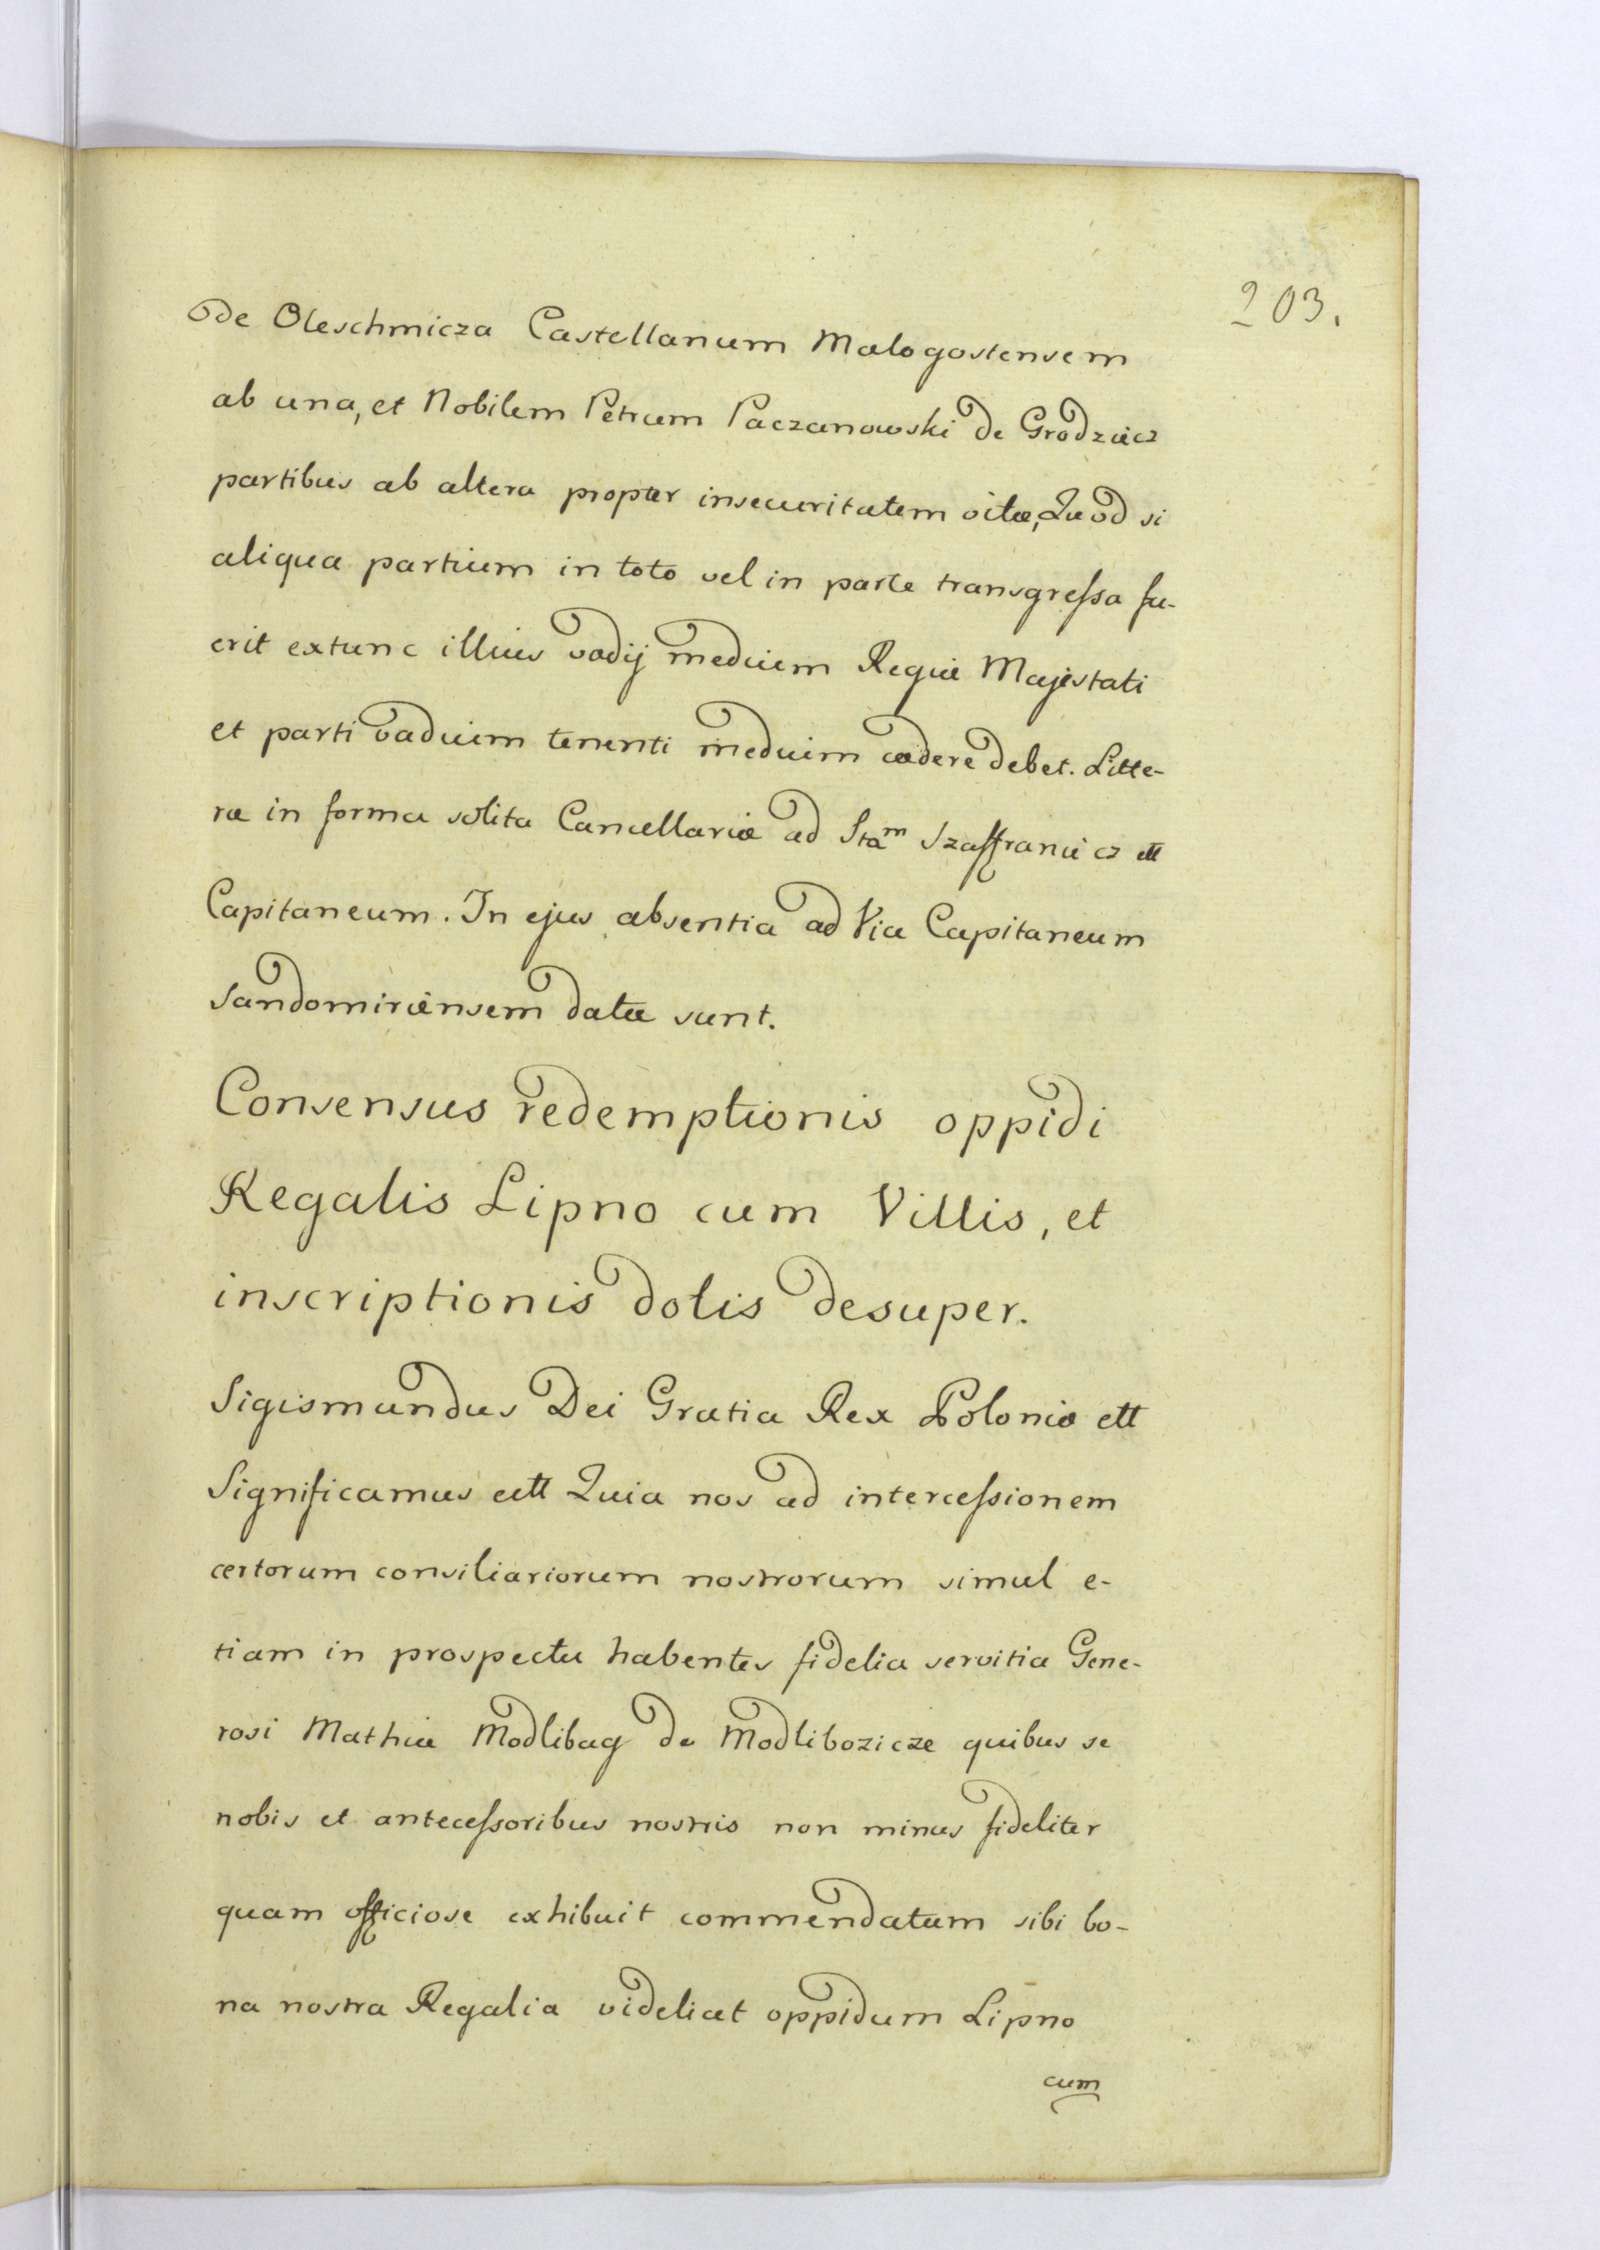 203.
de Oleschnicza Castellanum Malogostensem
ab una, et Nobilem Petrum Paczanowski de Grodziecz
partibus ab altera propter insecuritatem vitæ, Quod si
aliqua partium in toto vel in parte transgreſsa fu-
erit extunc illius vadij medium Regiæ Majestati
et parti vadium tenenti medium cædere debet. Litte-
ræ in forma solita Cancellariæ ad Stam Szaffraniecz ett
Capitaneum. In ejus absentia ad Via Capitaneum
Sandomiriensem datæ sunt.
Consensus redemptionis oppidi
Regalis Lipno cum Villis, et
inscriptionis dotis desuper.
Sigismundus Dei Gratia Rex Poloniæ ett
Significamus ett Quia nos ad interceſsionem
certorum consiliariorum nostrorum simul e-
tiam in prospectu habentes fidelia servitia Gene-
rosi Mathiæ Modlibag de Modlibozicze quibus se
nobis et anteceſsoribus nostris non minus fideliter
quam officiose exhibuit commendatum sibi bo-
na nostra Regalia videlicet oppidum Lipno
cum